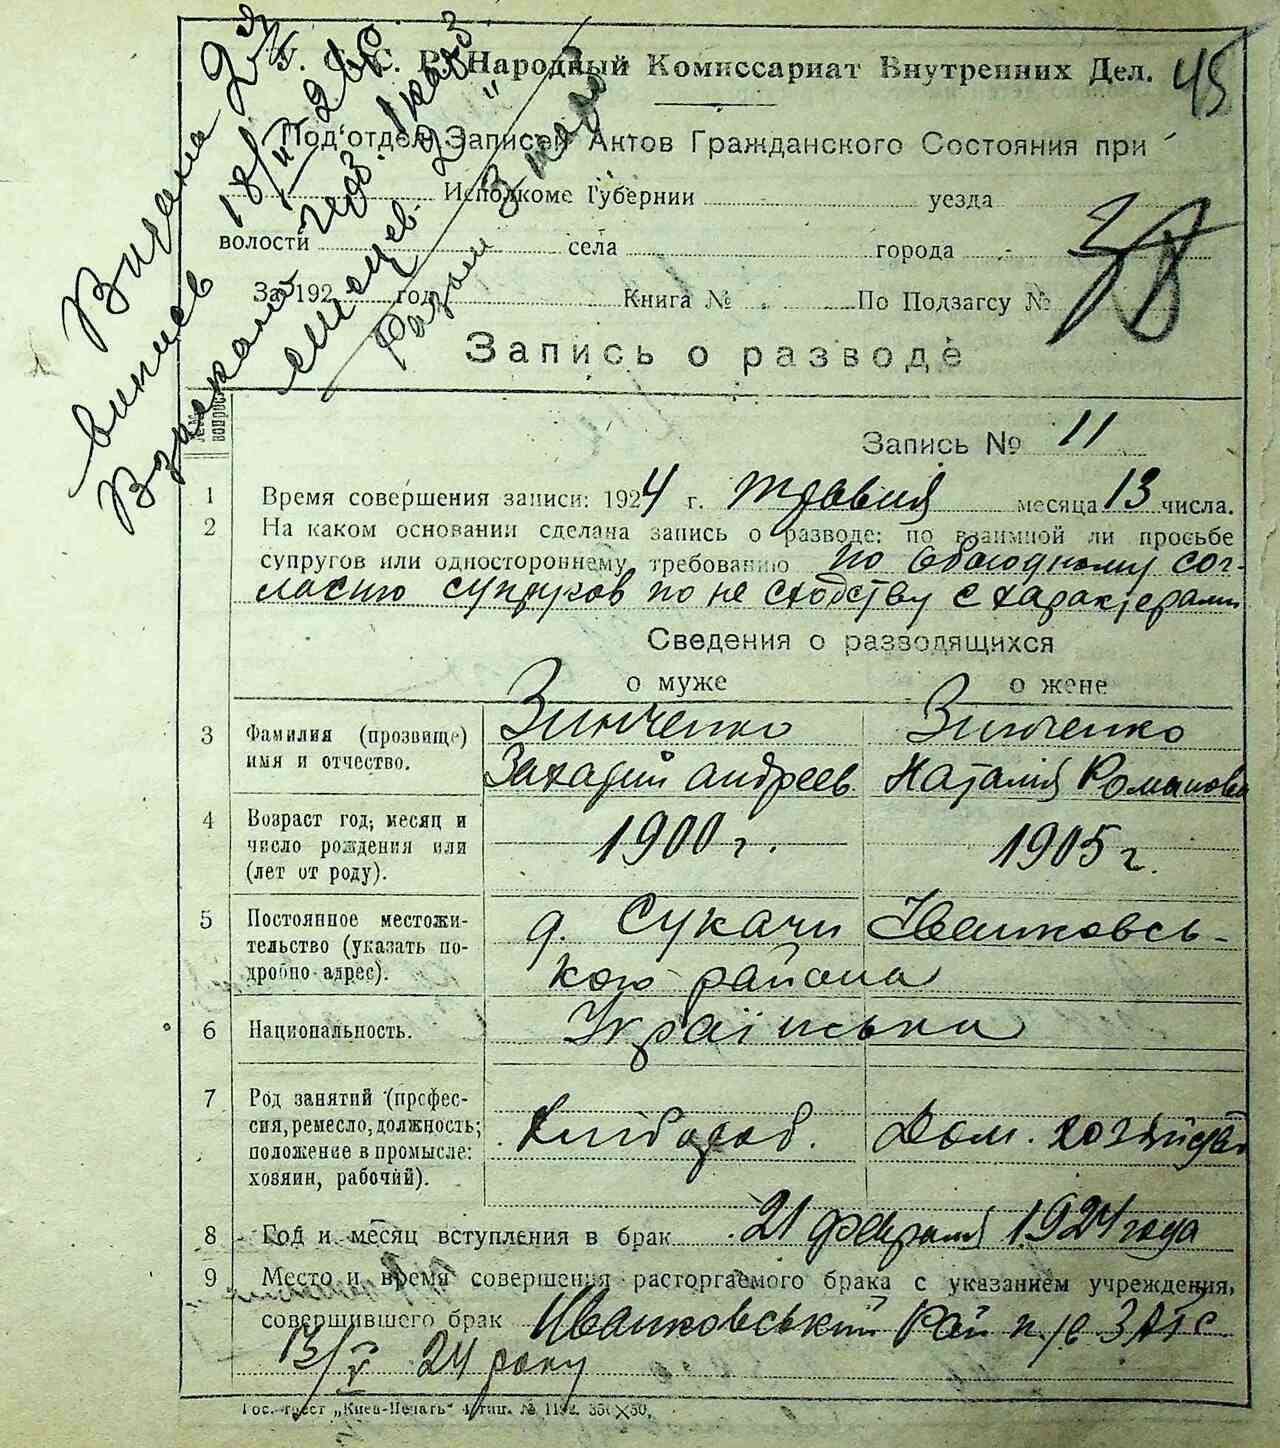 45
С. Р. Народный Комиссариат Внутренних Дел.
Под'отдел Записей Актов Гражданского Состояния при
Исполкоме Губернии уезда
волости села города
За 192 год Книга № По Подзагсу №
38
Запись о разводе
18/II 26 р
Разом 3 карб
№№ вопрос.
Запись № 11
1 Время совершения записи: 1924 г. травня месяца 13 числа.
2 На каком основании сделана запись о разводе: по взаимной ли просьбе
супругов или одностороннему требованию по обоюдному сог-
ласию супругов по не сходству с характерами
Сведения о разводящихся
о муже о жене
3 Фамилия (прозвище) имя и отчество.
Зинченко Зинченко
Захарий Андреев. Наталія Романова
4 Возраст год, месяц и число рождения или (лет от роду).
1900 г. 1905 г.
5 Постоянное местожи-
тельство (указать по-
дробно адрес).
д. Сукачи Иванковсь-
кого района
6 Национальность. Українська
7 Род занятий (профес-
сия, ремесло, должность;
положение в промысле:
хозяин, рабочий).
Хлібороб. Дом. хозяйство
8 Год и месяц вступления в брак 21 февраля 1924 года
9 Место и время совершения расторгаемого брака с указанием учреждения,
совершившего брак Иванковський Рай п/в ЗАГС
13/V 24 року
Гос. трест „Киев-Печать" 4 тип. № 1192. 350×50.